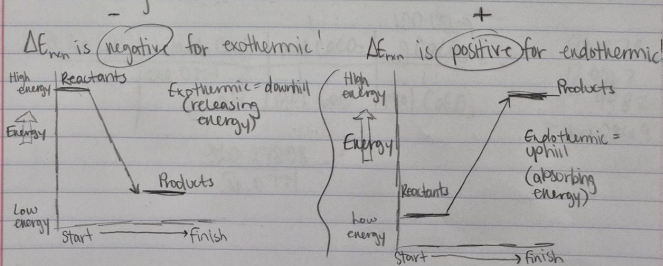 −
ΔErxn is negative for exothermic!
High energy
Reactants
Exothermic = downhill
(releasing
energy)
Energy
Products
Low
energy
Start → Finish
+
ΔErxn is positive for endothermic!
High
energy
Products
Energy
Endothermic =
uphill
(absorbing
energy)
Reactants
Low
energy
Start → Finish